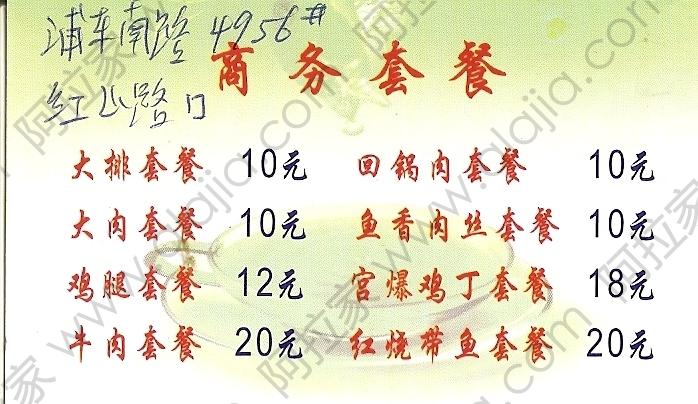 浦东南路 4956#
红山路口
商务套餐
大排套餐 10元 回锅肉套餐 10元
大肉套餐 10元 鱼香肉丝套餐 10元
鸡腿套餐 12元 宫爆鸡丁套餐 18元
牛肉套餐 20元 红烧带鱼套餐 20元
阿拉家 www.alajia.com